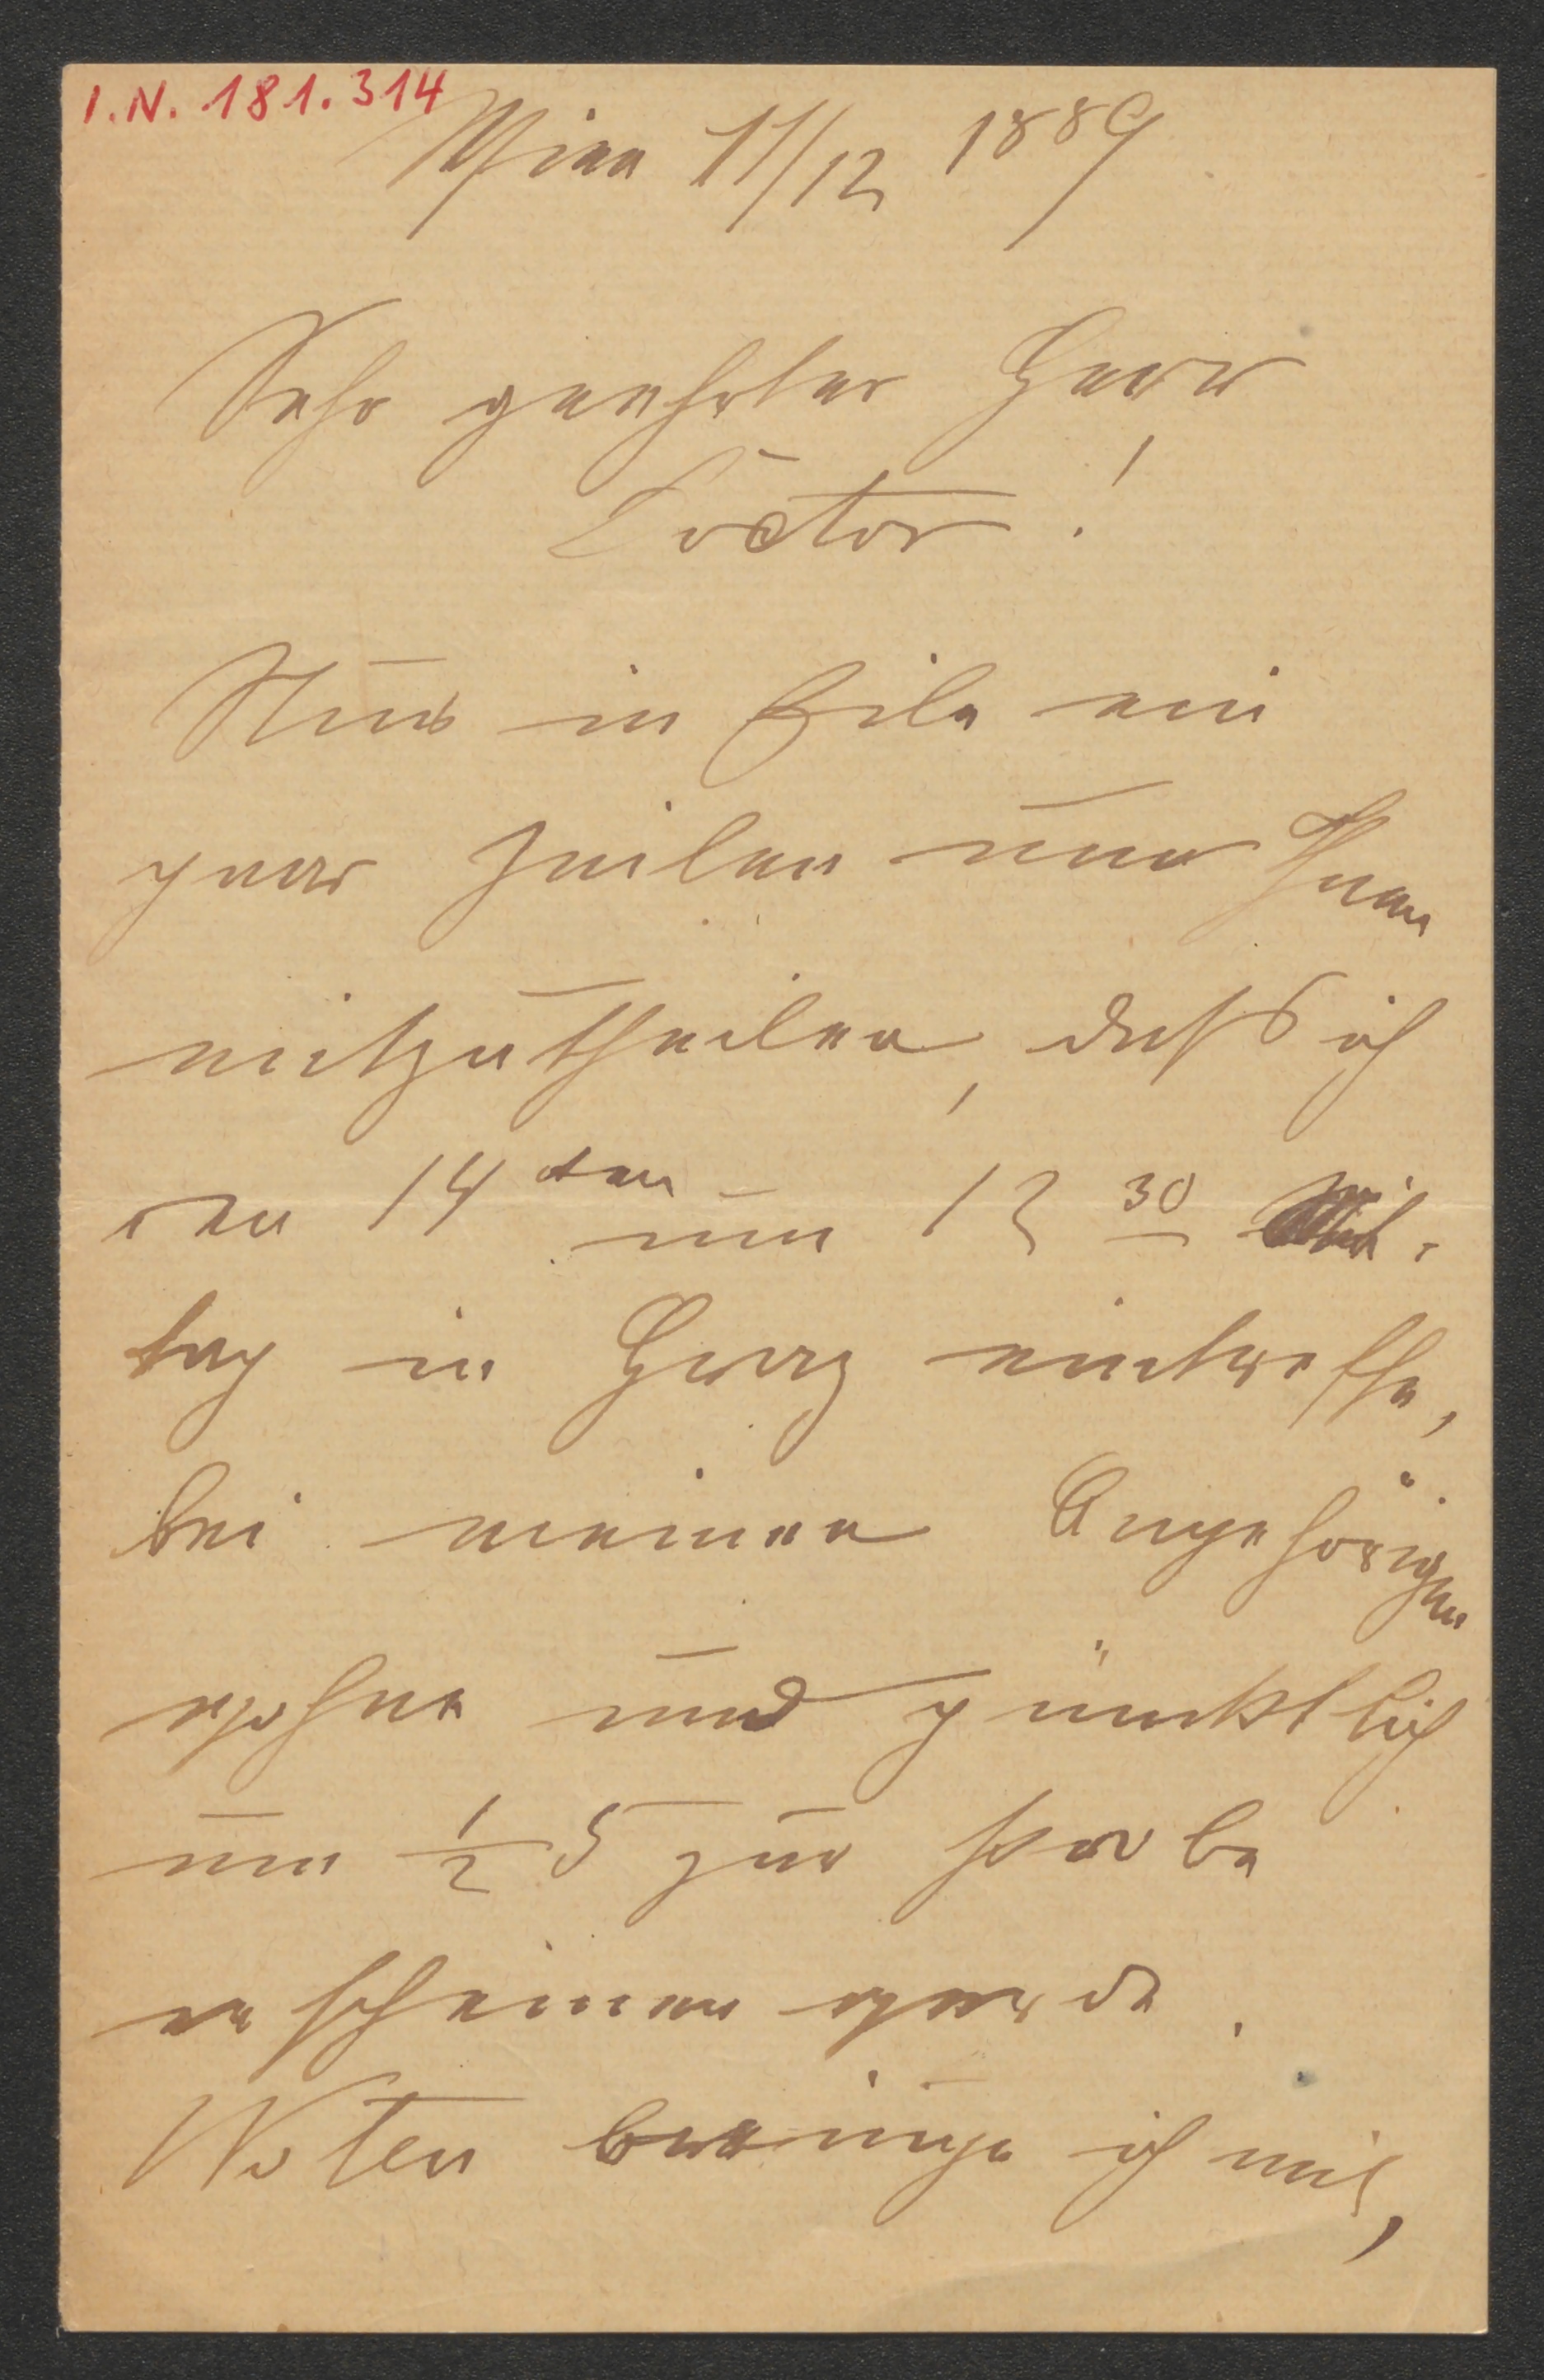 I.N. 181.314
Wien 11/12 1889
Sehr geehrter Herr
Doctor!
Nur in Eile ein
paar Zeilen um Ihnen
mitzutheilen, daß ich
den 14ten um 12 30 Mit-
tag in Graz eintreffe,
bei meinen Angehörigen
wohne und pünktlich
um ½ 5 zur Probe
erscheinen werde.
Noten bringe ich mit,